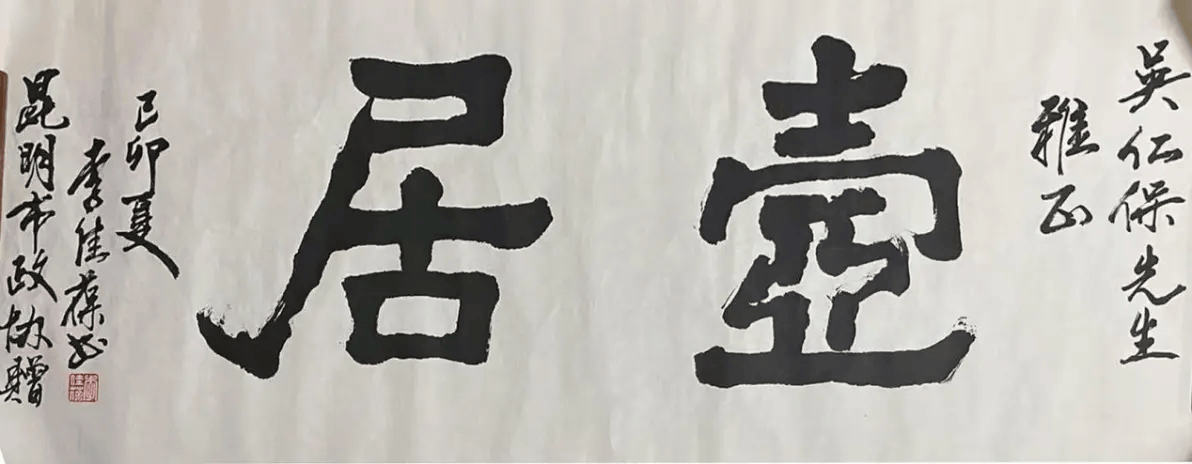 吳仁保先生
雅正
壺居
己卯夏
李佳葆书
昆明市政协赠